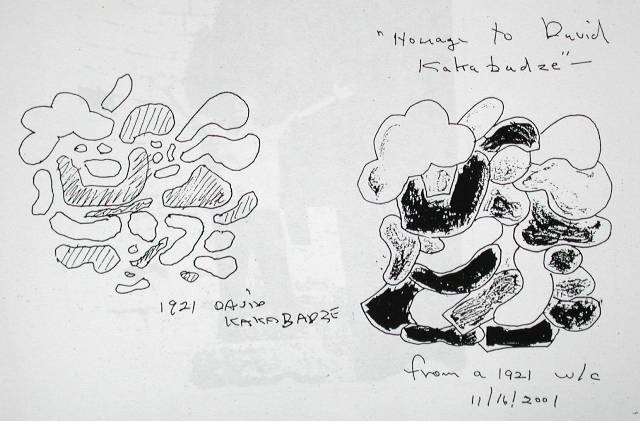 "Homage to David
Kakabadze"—
1921 DAVID
KAKABADZE
from a 1921 w/c
11/16/2001